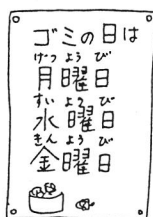 ゴミの日は
げつ よう び
月曜日
すい よう び
水曜日
きん よう び
金曜日